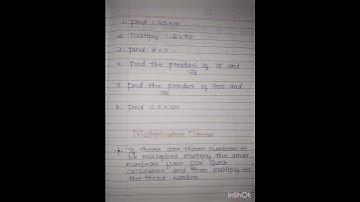 1. find 265×10
2. Multiply 1.2×90
3. find 8×0
4. find the product of 12 and
5. find the product of 702 and
6. find 0.5×100
Multiplication Three
If there are three numbers to
be multiplied multiply the small
numbers first for
calculation and then multiply to
the third number
InShOt